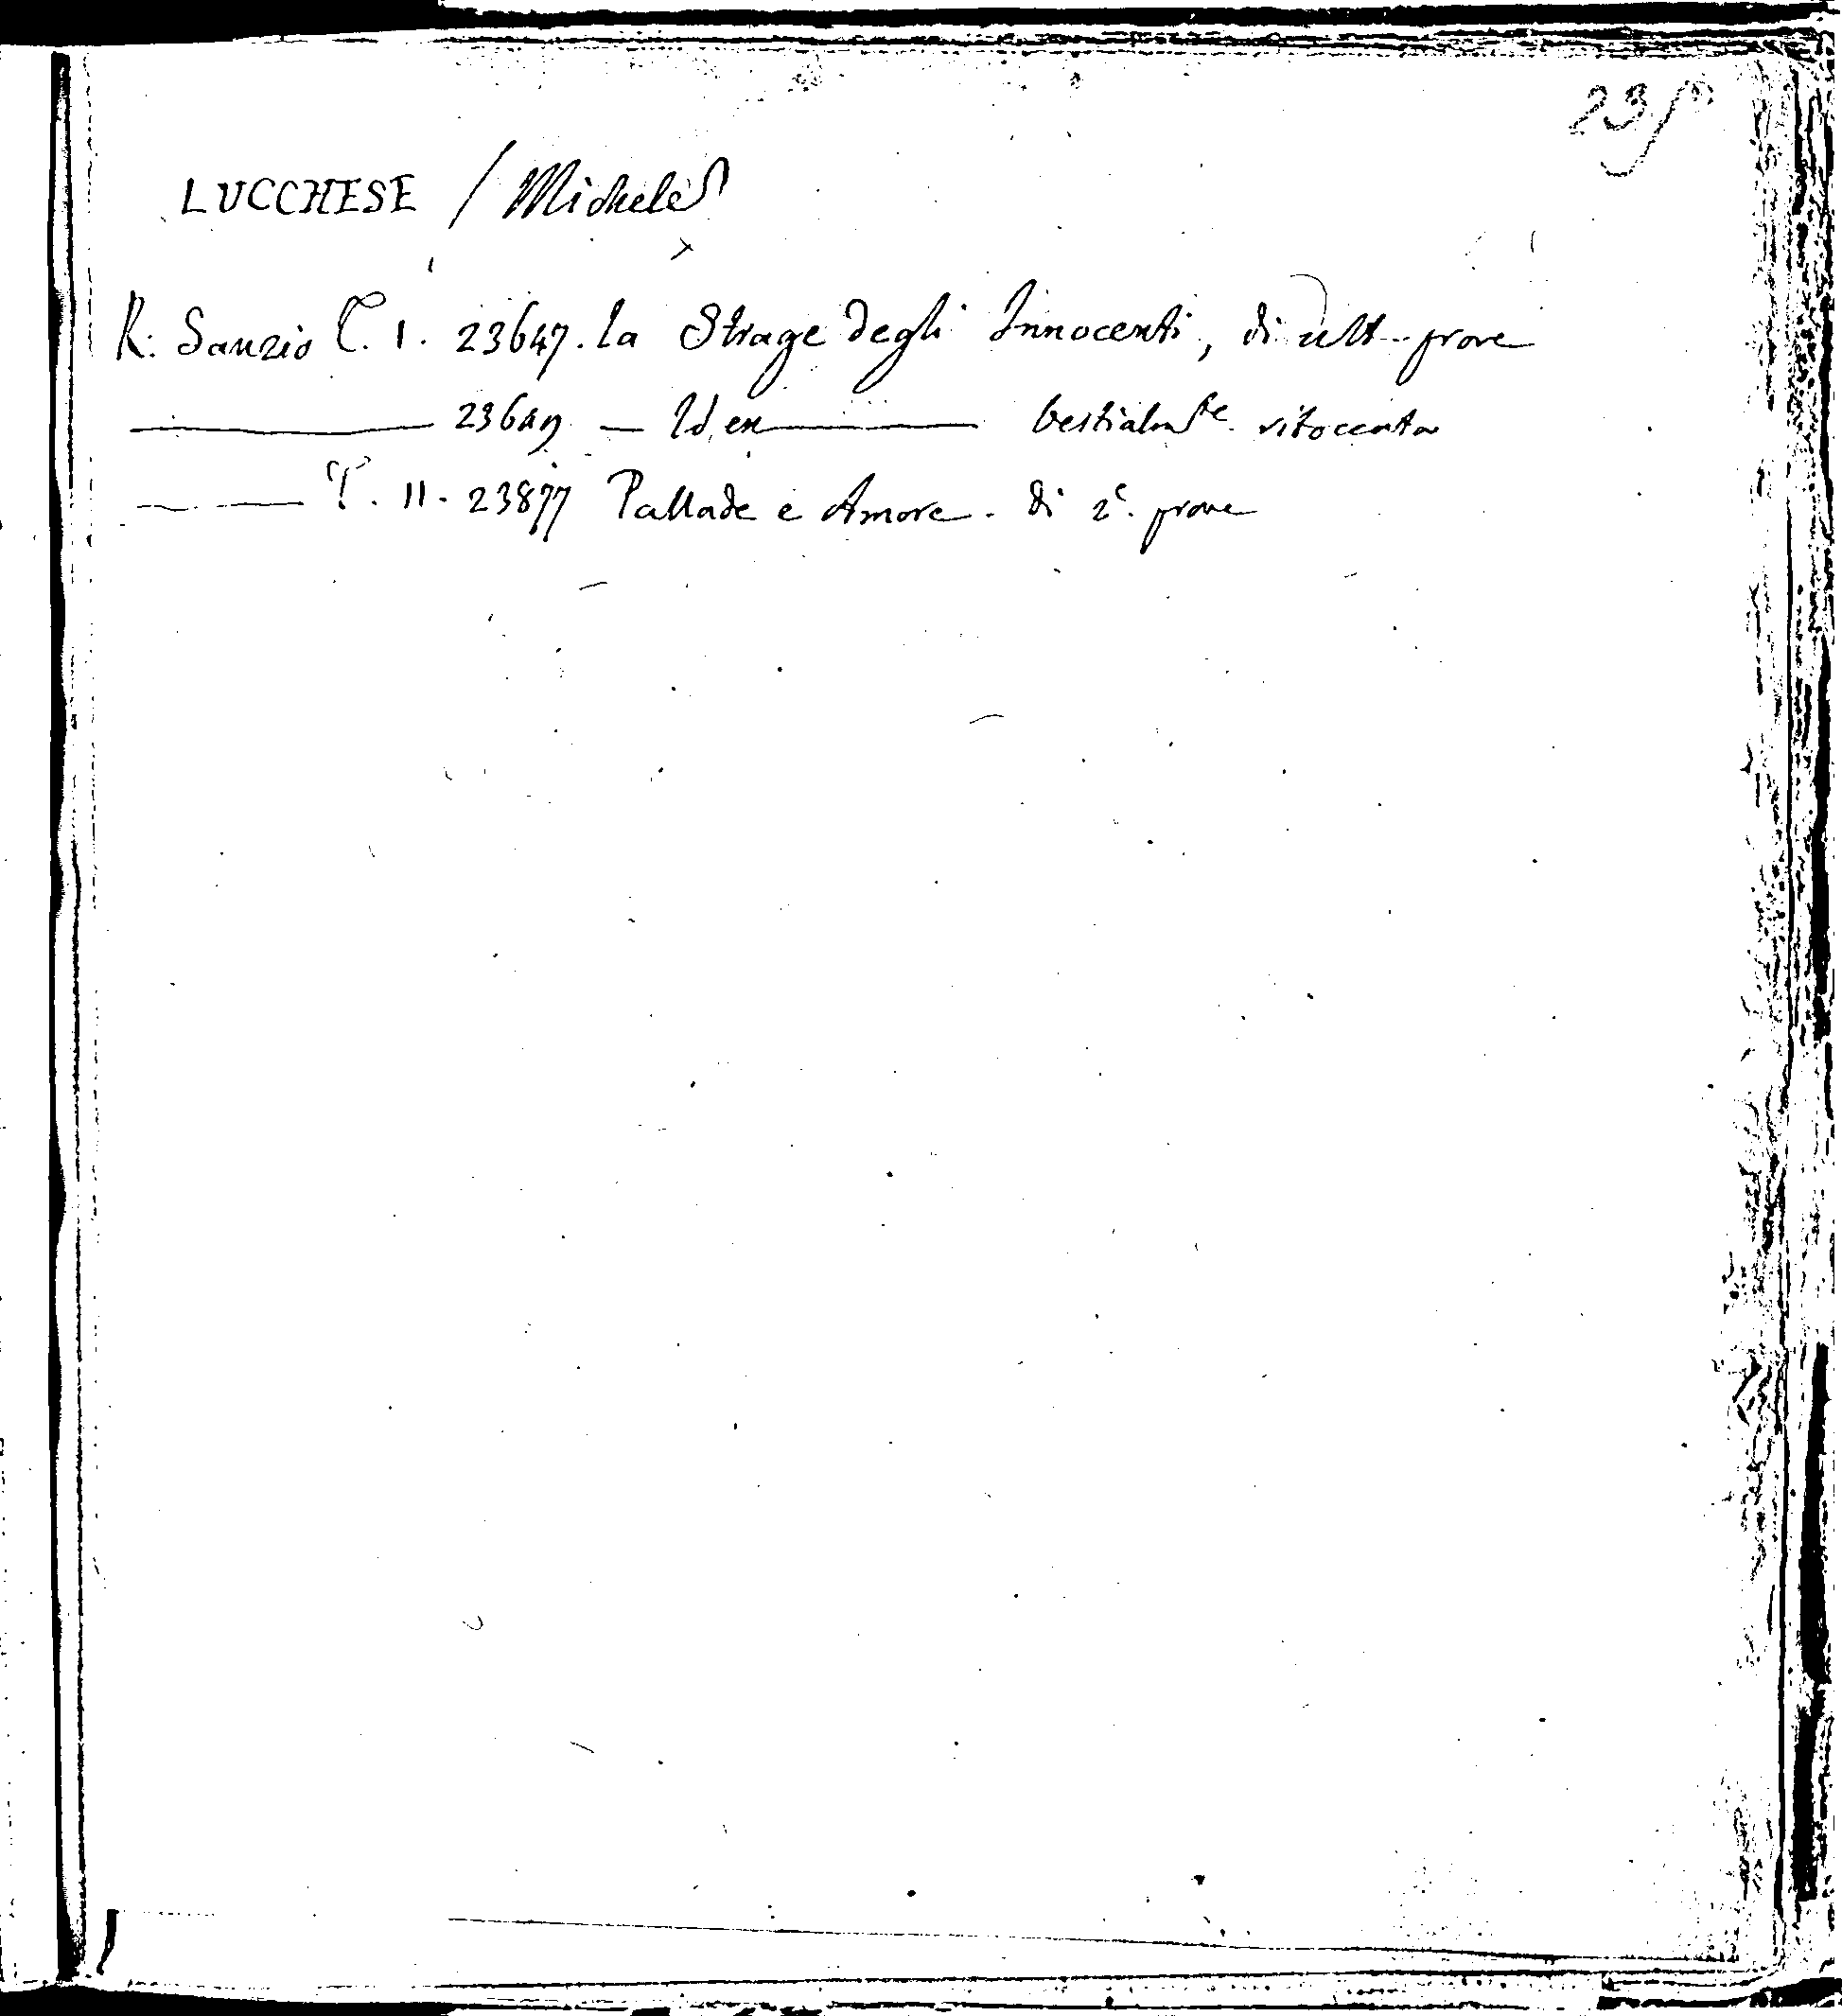 23
LUCCHESE / Michele
R: Sanzio T. I. 23647. la Strage degli Innocenti, di ult. prove
23649 — Idem bestialmte ritoccata
T. II. 23877 Pallade e Amore. di 2e. prove